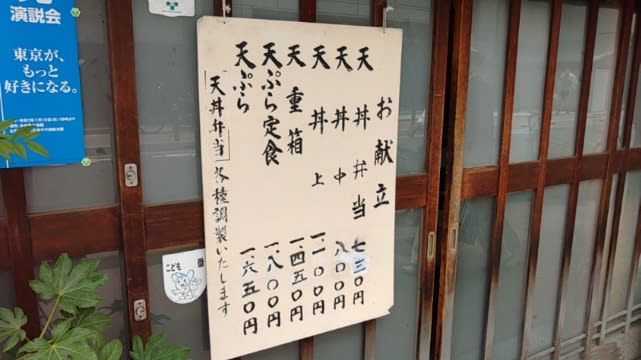 お献立
天丼弁当 七三〇円
天丼 中 八〇〇円
天丼 上 一、一〇〇円
天重箱 一、四五〇円
天ぷら定食 一、八〇〇円
天ぷら 一、六五〇円
天丼弁当 各種調製いたします
演説会
東京が、
もっと
好きになる。
こども